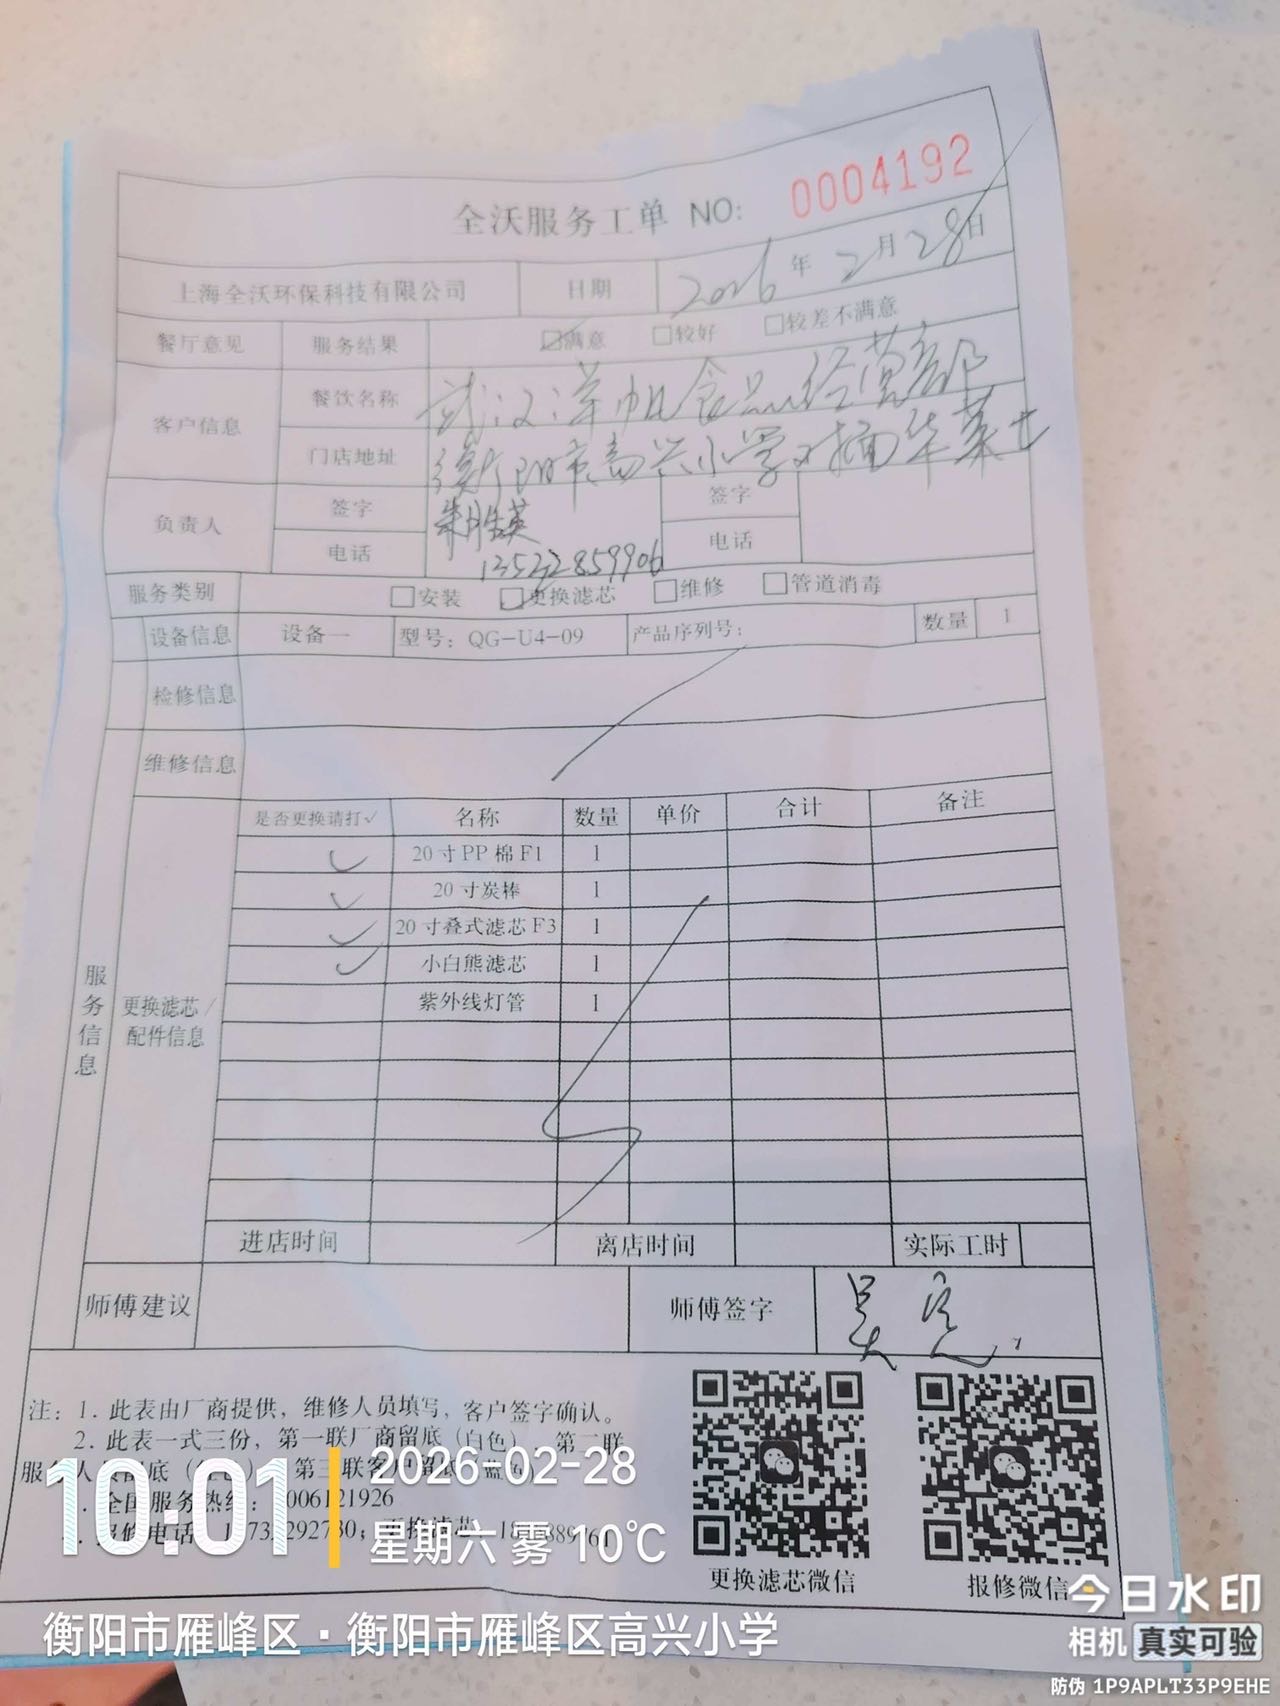 全沃服务工单 NO: 0004192
上海全沃环保科技有限公司 日期 2026年2月28日
餐厅意见 服务结果 ☑满意 □较好 □较差不满意
客户信息 餐饮名称 武汉洋帆食品经营部
门店地址 衡阳市高兴小学对面华莱士
负责人 签字 签字
电话 13522859906 电话
服务类别 □安装 ☑更换滤芯 □维修 □管道消毒
设备信息 设备一 型号：QG-U4-09 产品序列号： 数量 1
检修信息
维修信息
服务信息
更换滤芯/
配件信息
是否更换请打✓ 名称 数量 单价 合计 备注
✓ 20寸PP棉F1 1
✓ 20寸炭棒 1
✓ 20寸叠式滤芯F3 1
✓ 小白熊滤芯 1
紫外线灯管 1
进店时间 离店时间 实际工时
师傅建议 师傅签字 吴亮
注：1. 此表由厂商提供，维修人员填写，客户签字确认。
2. 此表一式三份，第一联厂商留底（白色） 第二联
服务人员留底 第三联客户留底
全国服务热线： 006121926
报修电话
更换滤芯微信 报修微信
10:01
2026-02-28
星期六 雾 10℃
衡阳市雁峰区·衡阳市雁峰区高兴小学
今日水印
相机 真实可验
防伪 1P9APLT33P9EHE